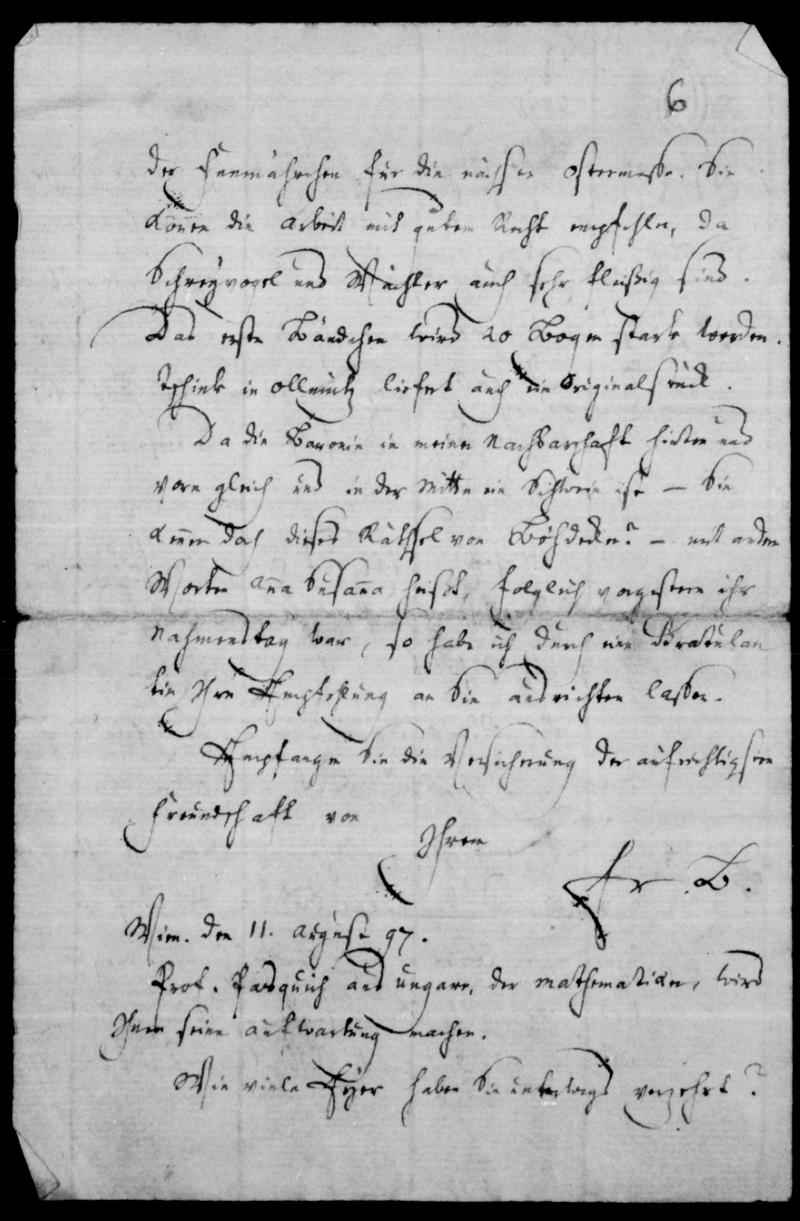 6
der Feenmährchen für die nächste Ostermesse. Sie
können die Arbeit mit gutem Recht empfehlen, da
Schreyvogel und Wächter auch sehr fleißig sind.
Das erste Bändchen wird 20 Bogen stark werden.
Tschink in Ollmütz liefert auch ein Originalstück.
Da die Baronin in meiner Nachbarschaft hinten und
vorn gleich und in der Mitte ein Schwein ist — Sie
kennen doch dieses Räthsel von — mit andern
Worten Anna Susanna heist, folglich vorgestern ihr
Nahmenstag war, so habe ich durch eine Gratulan
tin Ihre Empfehlung an Sie ausrichten lassen.
Empfangen Sie die Versicherung der aufrichtigsten
Freundschaft von
Ihrem
Fr. B.
Wien. den 11. August 97.
Prof. Pasquich aus Ungarn, der Mathematiker, wird
Ihnen seine Aufwartung machen.
Wie viele Eyer haben Sie unterwegs verzehrt?